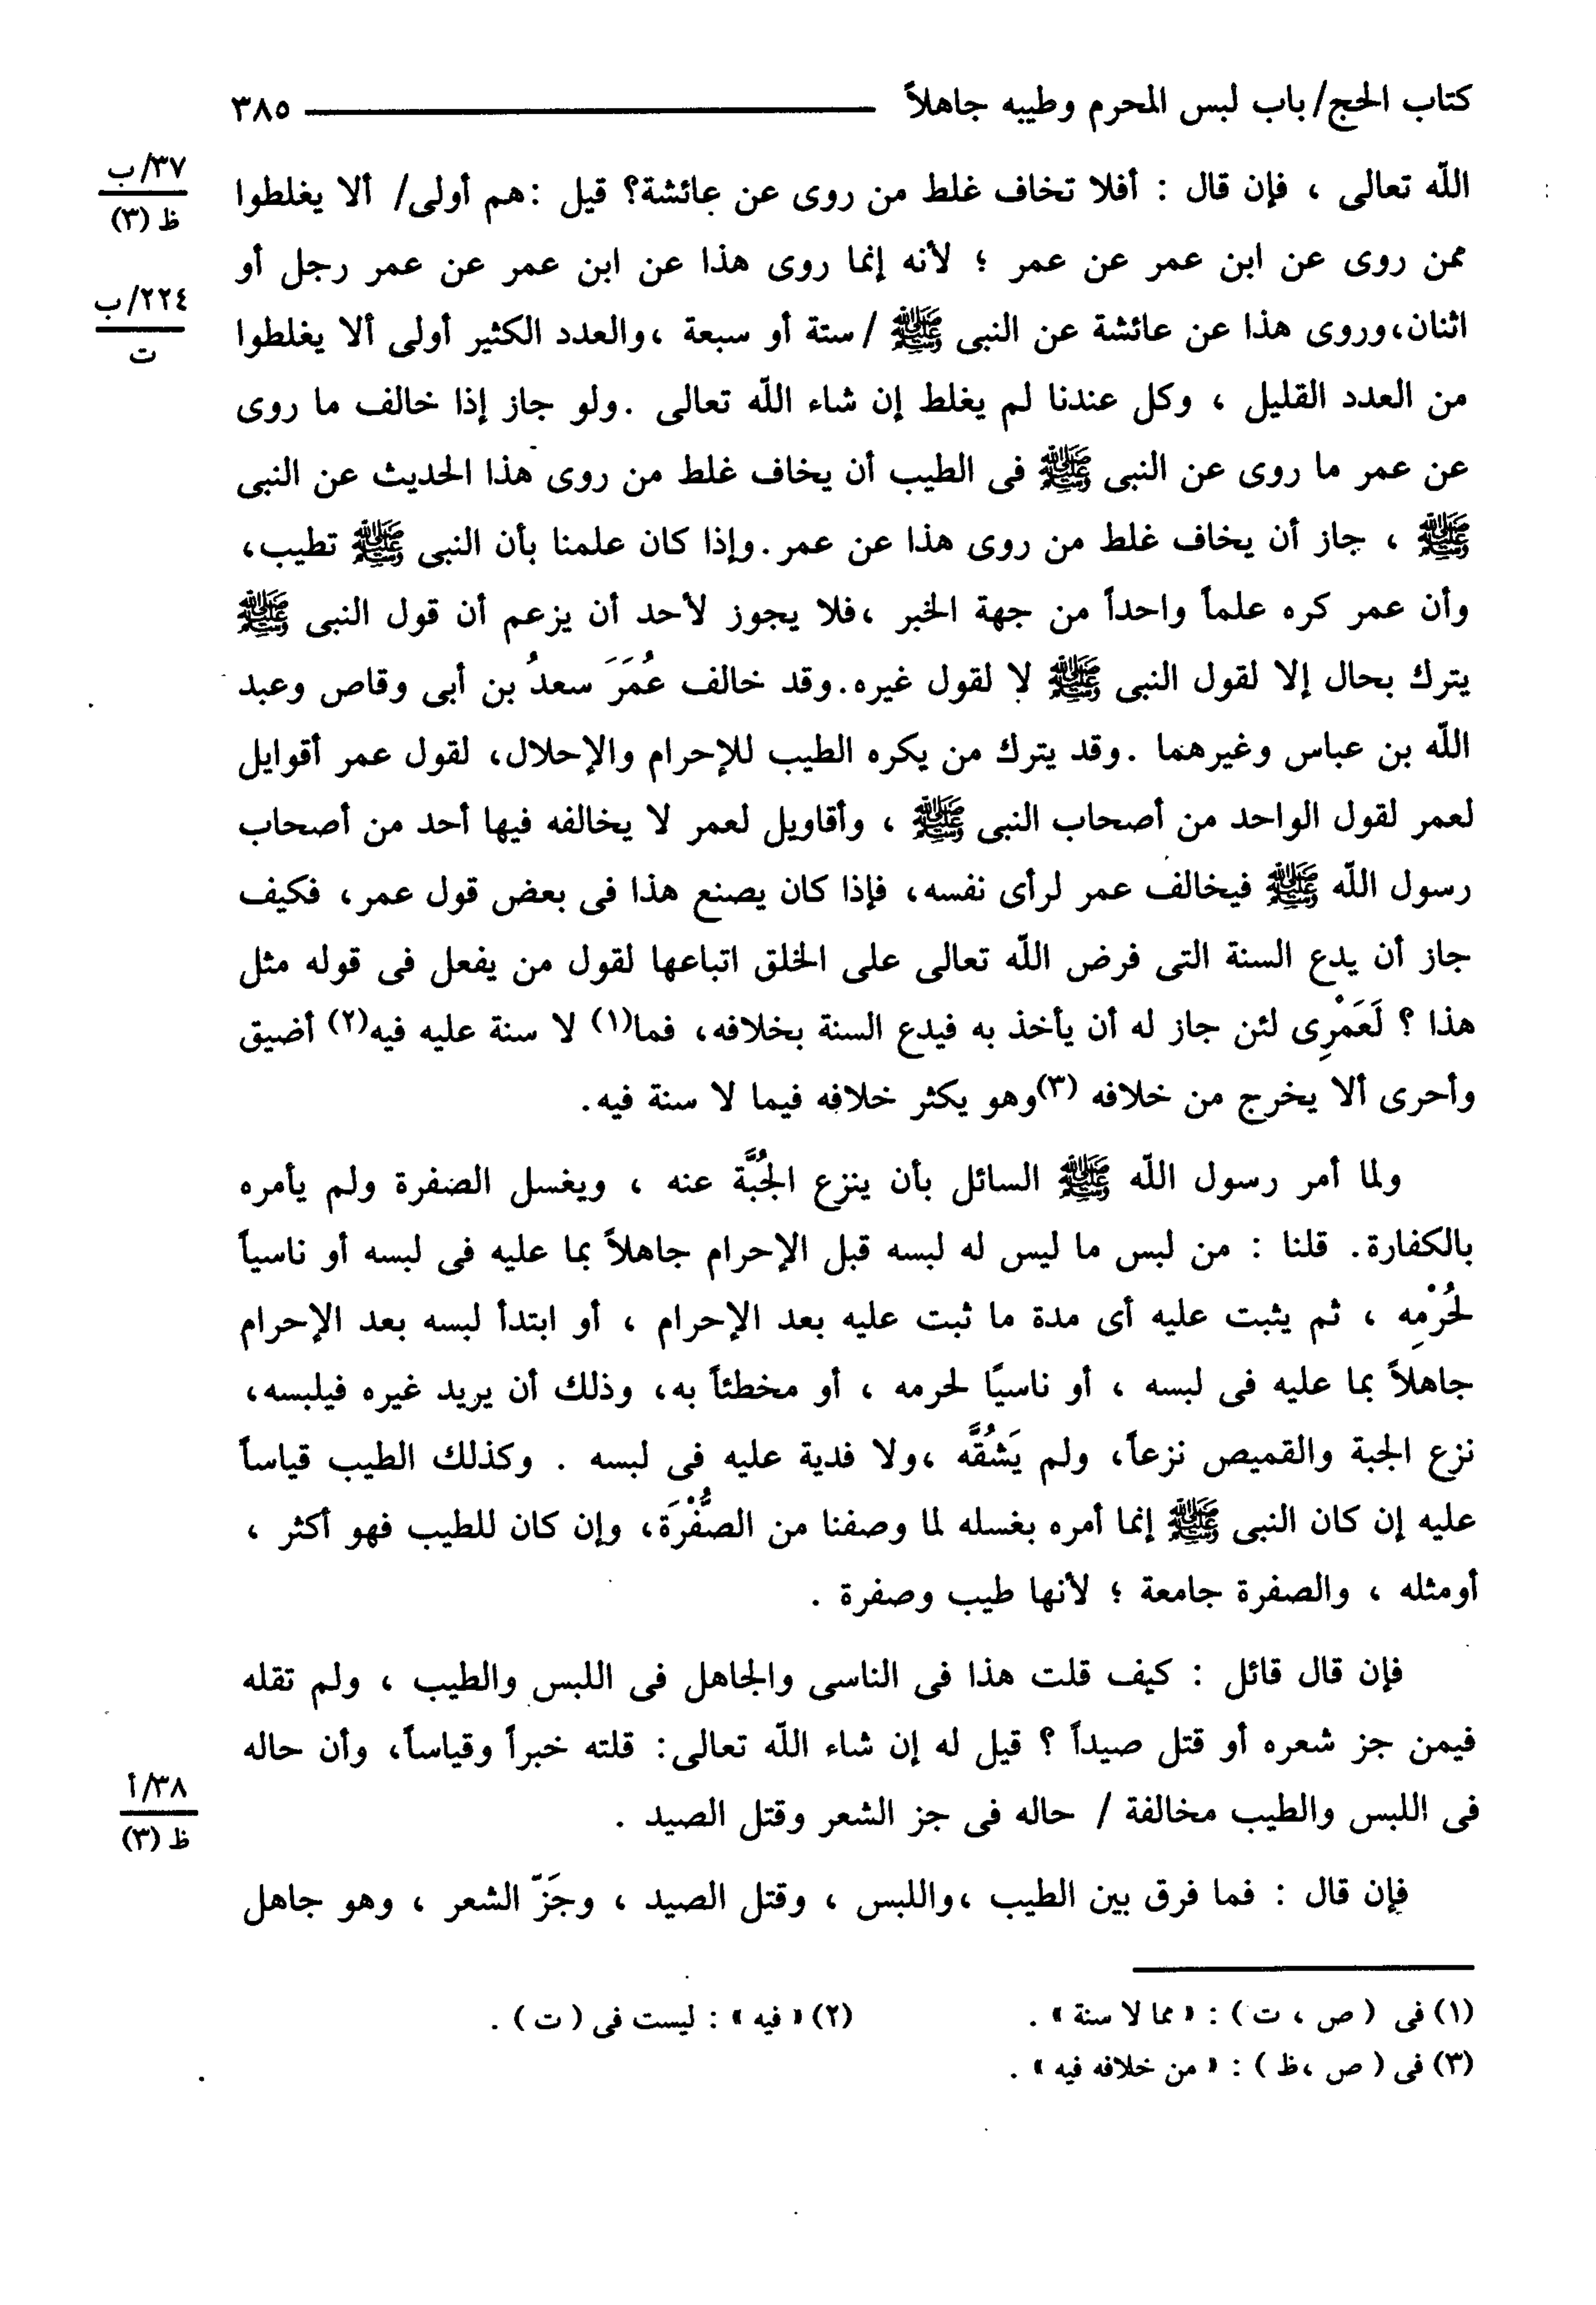 كتاب الحج/ باب لبس المحرم وطيبه جاهلاً ٣٨٥
٣٧/ب
ظ (٣)
الله تعالى ، فإن قال : أفلا تخاف غلط من روى عن عائشة؟ قيل :هم أولى/ ألا يغلطوا
ممن روى عن ابن عمر عن عمر ؛ لأنه إنما روى هذا عن ابن عمر عن عمر رجل أو
٢٢٤/ب
ت
اثنان،وروى هذا عن عائشة عن النبى ﷺ / ستة أو سبعة ،والعدد الكثير أولى ألا يغلطوا
من العدد القليل ، وكل عندنا لم يغلط إن شاء الله تعالى .ولو جاز إذا خالف ما روى
عن عمر ما روى عن النبى ﷺ فى الطيب أن يخاف غلط من روى هذا الحديث عن النبى
ﷺ ، جاز أن يخاف غلط من روى هذا عن عمر.وإذا كان علمنا بأن النبى ﷺ تطيب،
وأن عمر كره علماً واحداً من جهة الخبر ،فلا يجوز لأحد أن يزعم أن قول النبى ﷺ
يترك بحال إلا لقول النبى ﷺ لا لقول غيره.وقد خالف عُمَرَ سعدُ بن أبى وقاص وعبد
الله بن عباس وغيرهما .وقد يترك من يكره الطيب للإحرام والإحلال، لقول عمر أقوايل
لعمر لقول الواحد من أصحاب النبى ﷺ ، وأقاويل لعمر لا يخالفه فيها أحد من أصحاب
رسول الله ﷺ فيخالف عمر لرأى نفسه، فإذا كان يصنع هذا فى بعض قول عمر، فكيف
جاز أن يدع السنة التى فرض الله تعالى على الخلق اتباعها لقول من يفعل فى قوله مثل
هذا ؟ لَعَمْرِى لئن جاز له أن يأخذ به فيدع السنة بخلافه، فما(١) لا سنة عليه فيه(٢) أضيق
وأحرى ألا يخرج من خلافه (٣)وهو يكثر خلافه فيما لا سنة فيه.
ولما أمر رسول الله ﷺ السائل بأن ينزع الجُبَّة عنه ، ويغسل الصفرة ولم يأمره
بالكفارة. قلنا : من لبس ما ليس له لبسه قبل الإحرام جاهلاً بما عليه فى لبسه أو ناسياً
لحُرْمِه ، ثم يثبت عليه أى مدة ما ثبت عليه بعد الإحرام ، أو ابتدأ لبسه بعد الإحرام
جاهلاً بما عليه فى لبسه ، أو ناسيًا لحرمه ، أو مخطئاً به، وذلك أن يريد غيره فيلبسه،
نزع الجبة والقميص نزعاً، ولم يَشُقَّه ،ولا فدية عليه فى لبسه . وكذلك الطيب قياساً
عليه إن كان النبى ﷺ إنما أمره بغسله لما وصفنا من الصُّفْرَة، وإن كان للطيب فهو أكثر ،
أومثله ، والصفرة جامعة ؛ لأنها طيب وصفرة .
فإن قال قائل : كيف قلت هذا فى الناسى والجاهل فى اللبس والطيب ، ولم تقله
فيمن جز شعره أو قتل صيداً ؟ قيل له إن شاء الله تعالى: قلته خبراً وقياساً، وأن حاله
٣٨/أ
ظ (٣)
فى اللبس والطيب مخالفة / حاله فى جز الشعر وقتل الصيد .
فإن قال : فما فرق بين الطيب ،واللبس ، وقتل الصيد ، وجَزّ الشعر ، وهو جاهل
(١) فى ( ص ، ت ) : « مما لا سنة » . (٢) « فيه » : ليست فى ( ت ) .
(٣) فى ( ص ،ظ ) : « من خلافه فيه » .